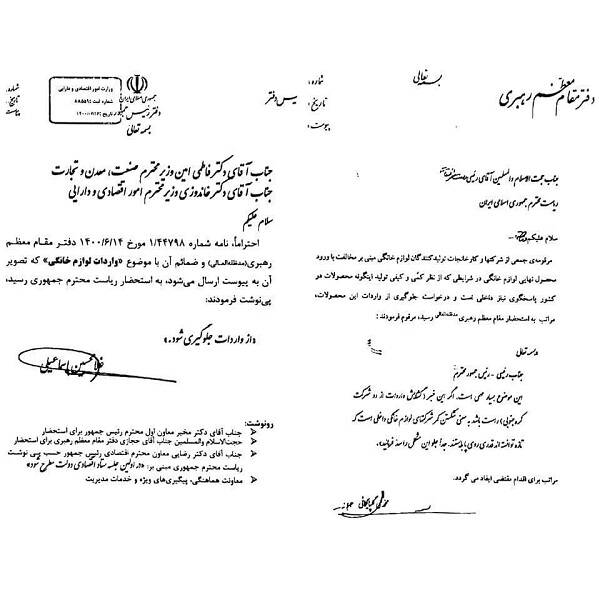 بسمه تعالی
دفتر مقام معظم رهبری
شماره:
تاریخ:
پیوست:
جناب حجت الاسلام والمسلمین آقای رئیسی
ریاست محترم جمهوری اسلامی ایران
سلام علیکم
مرقومه‌ی جمعی از شرکتها و کارخانجات تولیدکنندگان لوازم خانگی مبنی بر مخالفت با ورود
محصول نهایی لوازم خانگی در شرایطی که از نظر کمّی و کیفی تولید اینگونه محصولات در
کشور پاسخگوی نیاز داخلی است و درخواست جلوگیری از واردات این محصولات،
مراتب به استحضار مقام معظم رهبری مدظله‌العالی رسید، مرقوم فرمودند:
بسمه تعالی
جناب رئیسی - رئیس جمهور محترم
این موضوع بسیار مهمی است. اگر این خبر (گشایش واردات از دو شرکت
کره جنوبی) راست باشد به معنی شکستن کمر شرکتهای لوازم خانگی داخلی است که
تازه توانسته‌اند قدری روی پا بایستند. جداً جلو این مشکل را سد فرمائید.
مراتب برای اقدام مقتضی ایفاد می گردد.
جمهوری اسلامی ایران
رئیس دفتر
دفتر رئیس
بسمه تعالی
شماره:
تاریخ:
پیوست:
وزارت امور اقتصادی و دارایی
شماره ثبت
تاریخ
جناب آقای دکتر فاطمی امین وزیر محترم صنعت، معدن و تجارت
جناب آقای دکتر خاندوزی وزیر محترم امور اقتصادی و دارایی
سلام علیکم
احتراماً، نامه شماره ۱/۴۴۷۹۸ مورخ ۱۴۰۰/۶/۱۴ دفتر مقام معظم
رهبری(مدظله‌العالی) و ضمائم آن با موضوع «واردات لوازم خانگی» که تصویر
آن به پیوست ارسال می‌شود، به استحضار ریاست محترم جمهوری رسید،
پی‌نوشت فرمودند:
«از واردات جلوگیری شود.»
غلامحسین اسماعیلی
رونوشت:
جناب آقای دکتر مخبر معاون اول محترم رئیس جمهور برای استحضار
حجت‌الاسلام والمسلمین جناب آقای حجازی دفتر مقام معظم رهبری برای استحضار
جناب آقای دکتر رضایی معاون محترم اقتصادی رئیس جمهور حسب پی نوشت
ریاست محترم جمهوری مبنی بر: «در اولین جلسه ستاد اقتصادی دولت مطرح شود»
معاونت هماهنگی، پیگیری‌های ویژه و خدمات مدیریت